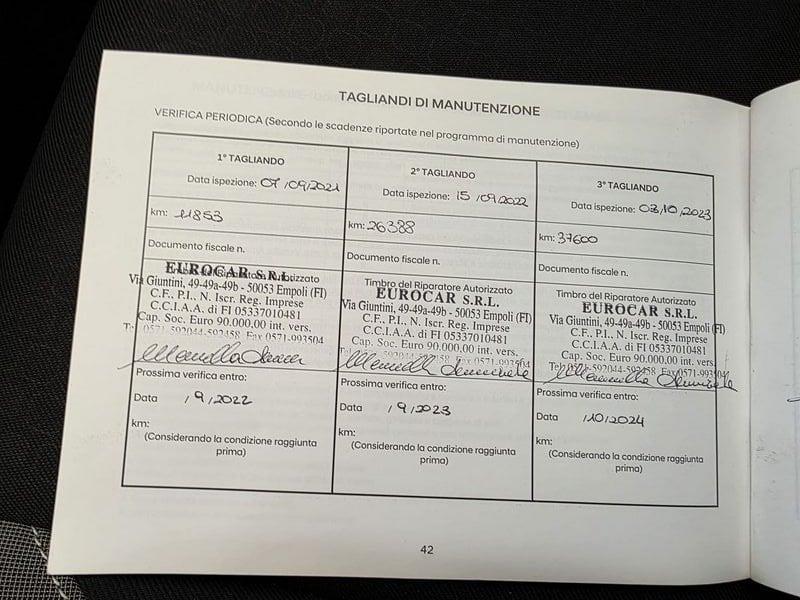 TAGLIANDI DI MANUTENZIONE
VERIFICA PERIODICA (Secondo le scadenze riportate nel programma di manutenzione)
1° TAGLIANDO
Data ispezione: 07/09/2021
km: 11853
Documento fiscale n.
Timbro del Riparatore Autorizzato
EUROCAR S.R.L.
Via Giuntini, 49-49a-49b - 50053 Empoli (FI)
C.F., P.I., N. Iscr. Reg. Imprese
C.C.I.A.A. di FI 05337010481
Cap. Soc. Euro 90.000,00 int. vers.
Tel. 0571-592044-592458 Fax 0571-993504
Prossima verifica entro:
Data /9/2022
km:
(Considerando la condizione raggiunta
prima)
2° TAGLIANDO
Data ispezione: 15/09/2022
km: 26388
Documento fiscale n.
Timbro del Riparatore Autorizzato
EUROCAR S.R.L.
Via Giuntini, 49-49a-49b - 50053 Empoli (FI)
C.F., P.I., N. Iscr. Reg. Imprese
C.C.I.A.A. di FI 05337010481
Cap. Soc. Euro 90.000,00 int. vers.
Tel. 0571-592044-592458 Fax 0571-993504
Prossima verifica entro:
Data /9/2023
km:
(Considerando la condizione raggiunta
prima)
3° TAGLIANDO
Data ispezione: 03/10/2023
km: 37600
Documento fiscale n.
Timbro del Riparatore Autorizzato
EUROCAR S.R.L.
Via Giuntini, 49-49a-49b - 50053 Empoli (FI)
C.F., P.I., N. Iscr. Reg. Imprese
C.C.I.A.A. di FI 05337010481
Cap. Soc. Euro 90.000,00 int. vers.
Tel. 0571-592044-592458 Fax 0571-993504
Prossima verifica entro:
Data /10/2024
km:
(Considerando la condizione raggiunta
prima)
42